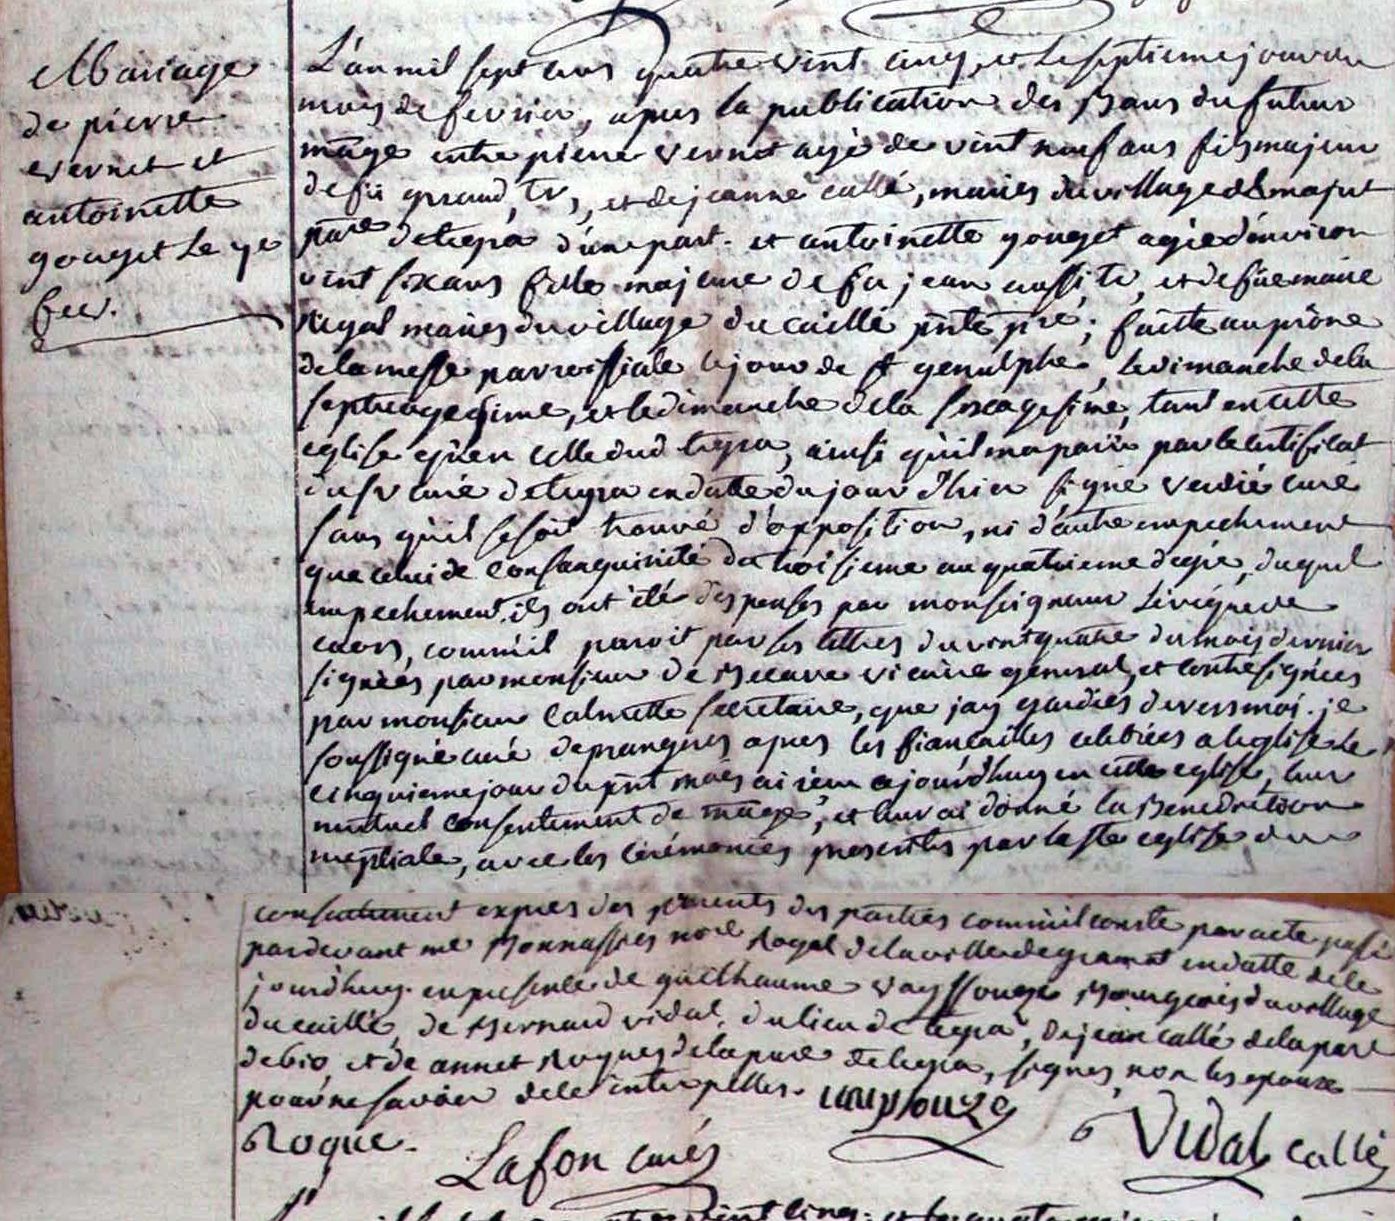 Mariage
de pierre
vernet et
antoinette
gouget le 7e
fev.
L'an mil sept cens quatre vint cinq, et le septieme jour du
mois de fevrier, apres la publication des Bans du futur
mãge entre pierre vernet agé de vint neuf ans fils majeur
de fû giraud, tr, et de jeanne callé, mariés du village del majut
pãre de tegra d'une part. et antoinette gouget agée d'environ
vint six ans fille majeure de fû jean aussi tr, et de fûe marie
rigal mariés du village du caillé pñte pre; faite au prône
de la messe parroissiale le jour de st genulphe, le dimanche de la
septuagesime, et le dimanche de la sexagesime, tant en cette
eglise qu'en celle dud tegra, ainsi qu'il m'a paru par le certificat
du sr curé de tegra en datte du jour d'hier signé verdié curé
sans qu'il se soit trouvé d'opposition, ni d'autre empechement
que celui de consanguinité du troisieme au quatrieme degré, duquel
empechement ils ont été dispensés par monseigneur L'évêque de
caors, comm'il paroit par les lettres du vint quatre du mois dernier
signées par monsieur de Becave vicaire general, et contresignées
par monsieur Calmette secretaire, que jay gardées devers moi. je
soussigné curé de prangeres apres les fiancailles celebrées a l'eglise le
cinquieme jour du pñt mois ai reçu ajourd'huy en cette eglise, leur
mutuel consentement de mãge, et leur ai donné la Benediction
nuptiale, avec les cérémonies prescrites par la ste eglise du
consentement expres des parents des parties comm'il conste par acte passé
pardevant me Bonnassies nore Royal de la ville de gramat en datte de ce
jourd'huy. en presence de guilhaume vayssouze Bourgeois du village
du caillé, de Bernard vidal, du lieu de tegra, de jean callé de la pare
de bio, et de annet Roques de la pare de tegra, signés, non les epoux
pour ne savoir de ce interpellés. vayssouze
Roque. Lafon curés Vidal callé